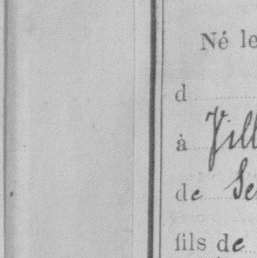 Né le
d
à Vill
de Se
fils de